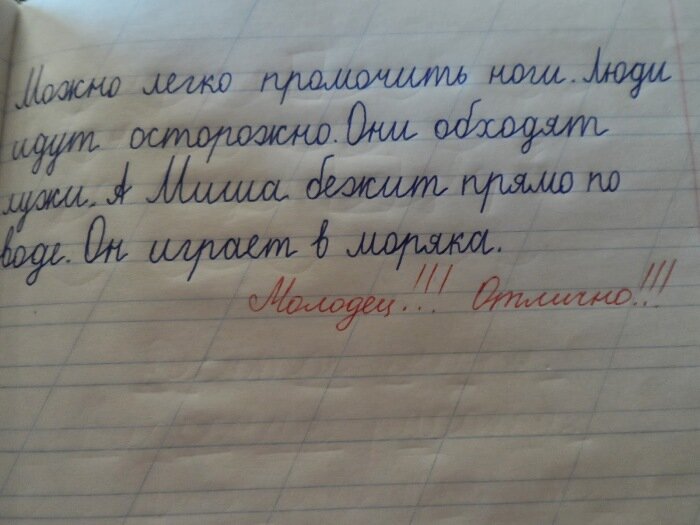 Можно легко промочить ноги. Люди
идут осторожно. Они обходят
лужи. А Миша бежит прямо по
воде. Он играет в моряка.
Молодец!!! Отлично!!!